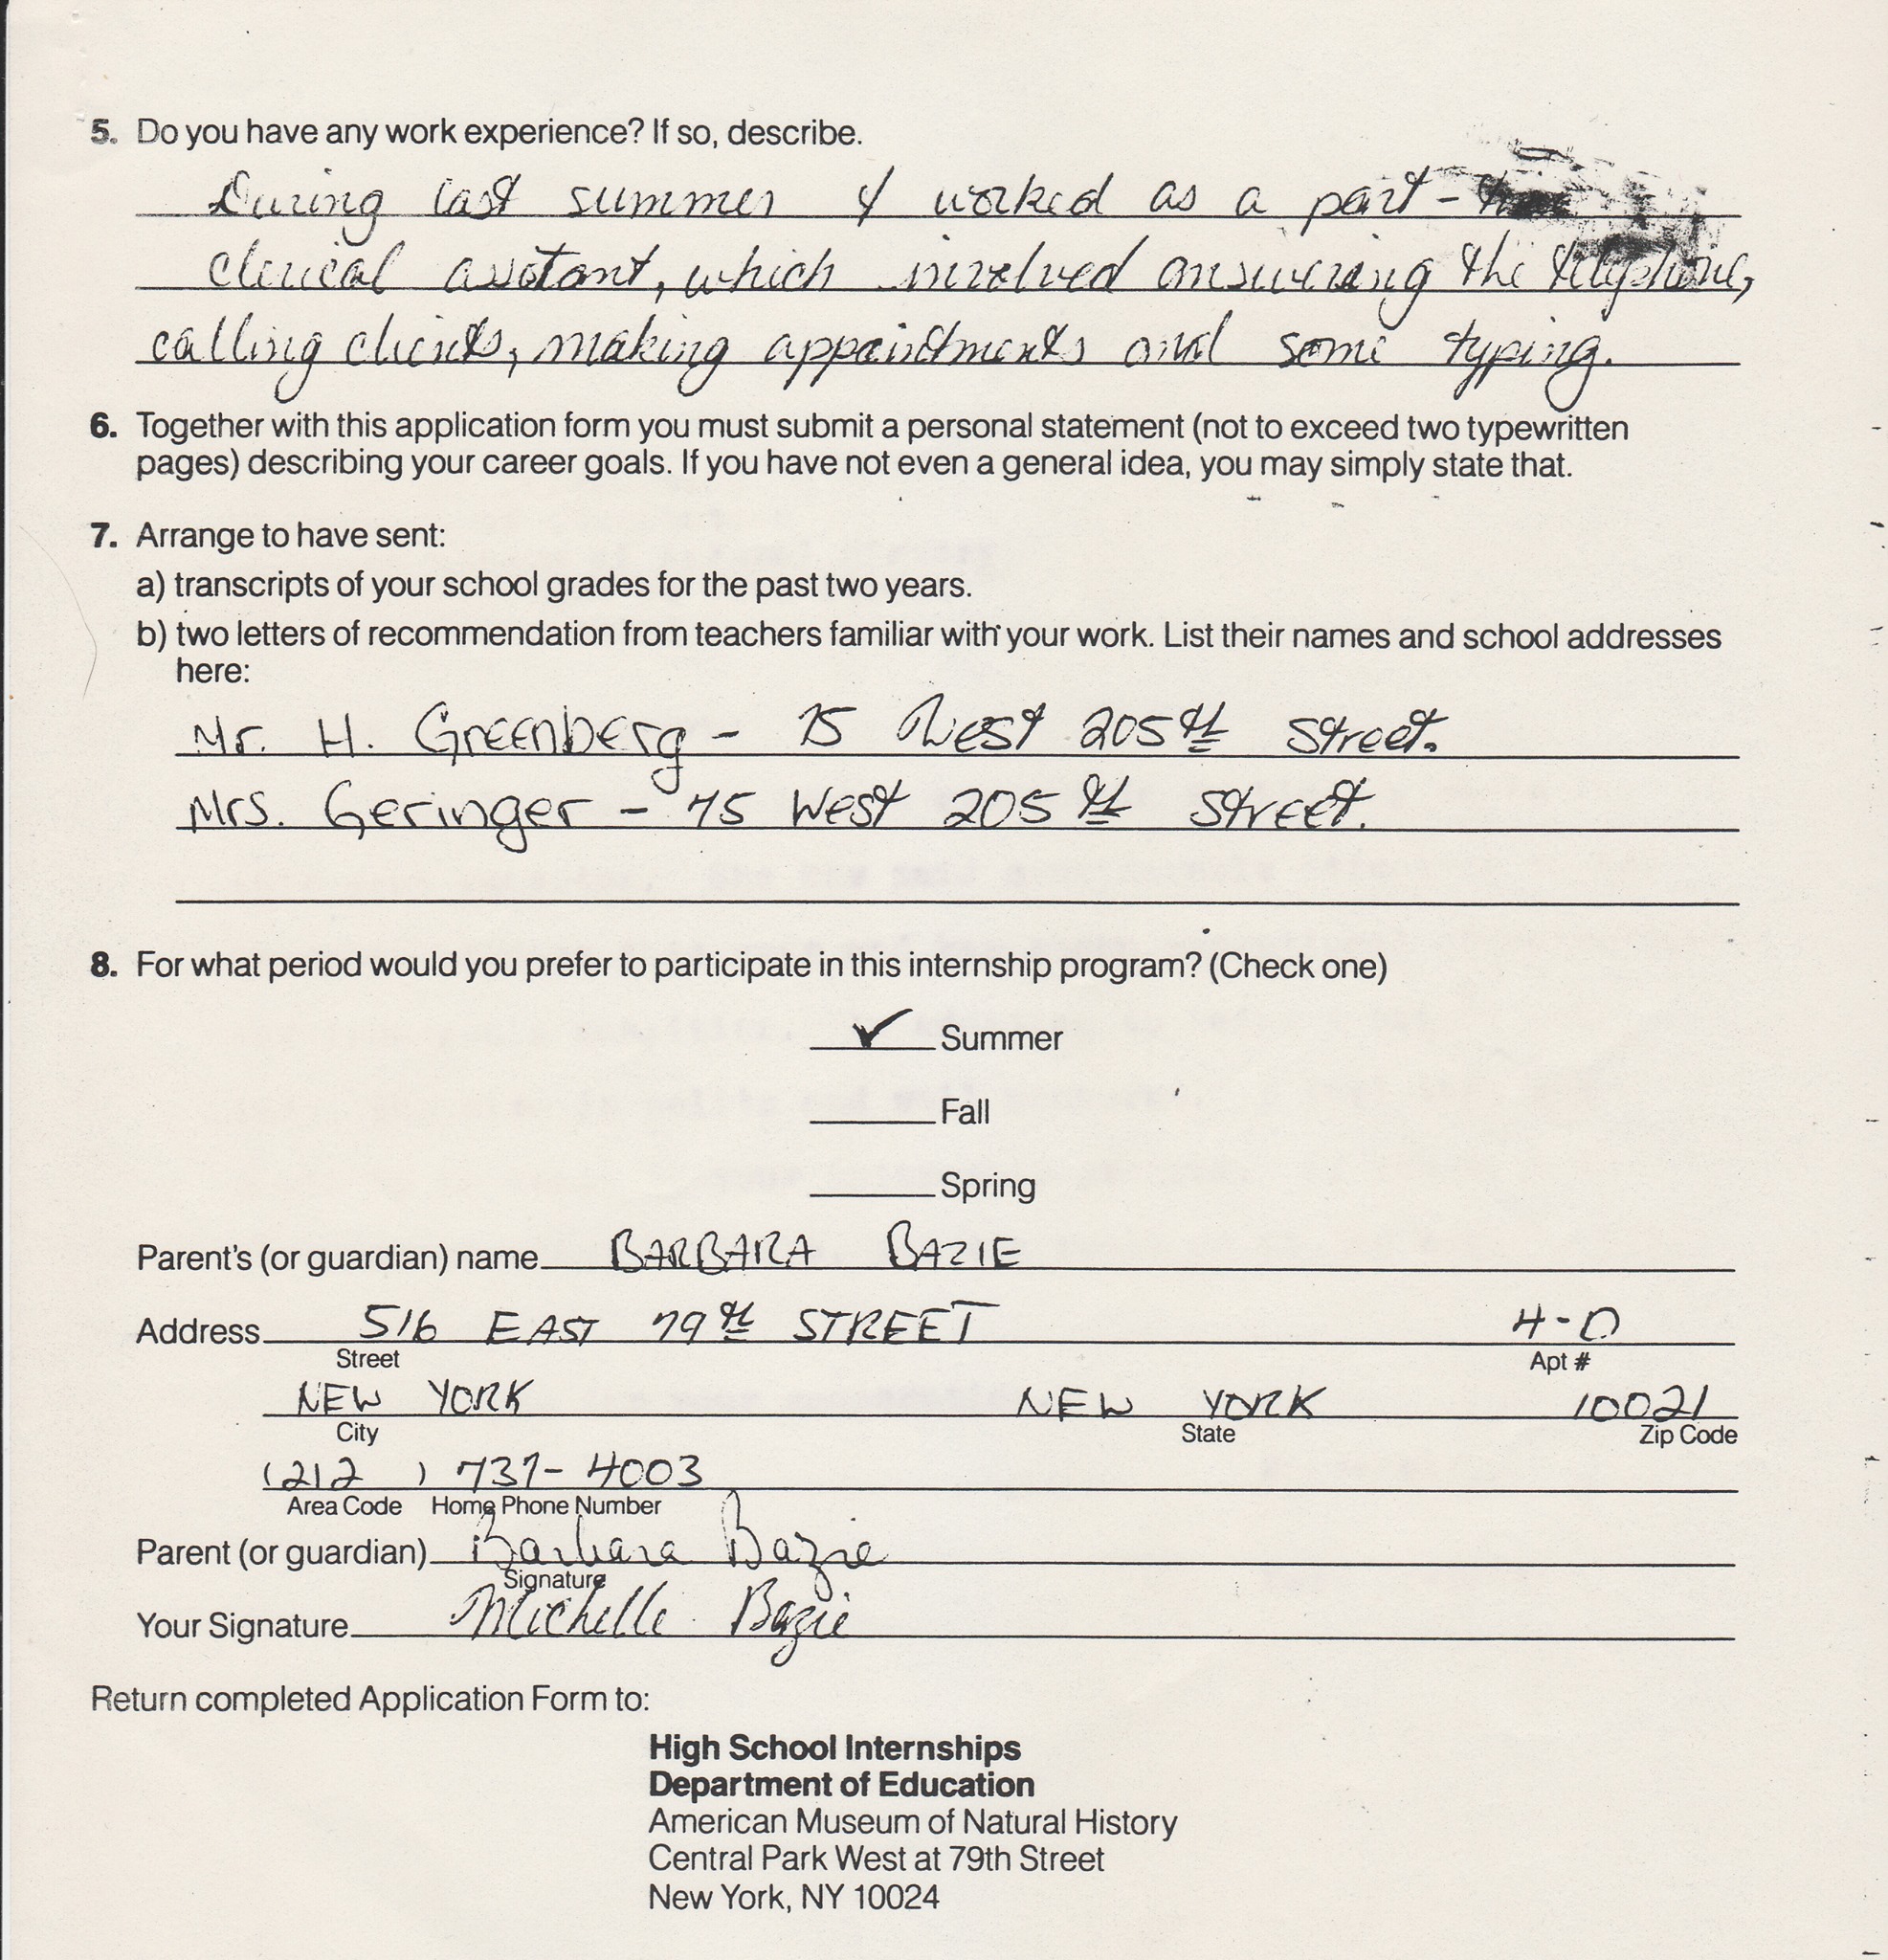 5. Do you have any work experience? If so, describe.
During last summer I worked as a part-
clerical assitant, which involved answering the telephone,
calling clients, making appointments and some typing.
6. Together with this application form you must submit a personal statement (not to exceed two typewritten
pages) describing your career goals. If you have not even a general idea, you may simply state that.
7. Arrange to have sent:
a) transcripts of your school grades for the past two years.
b) two letters of recommendation from teachers familiar with your work. List their names and school addresses
here:
Mr. H. Greenberg - 75 West 205th Street.
Mrs. Geringer - 75 West 205th Street.
8. For what period would you prefer to participate in this internship program? (Check one)
✓ Summer
Fall
Spring
Parent's (or guardian) name BARBARA BAZIE
Address 516 EAST 79th STREET 4-D
Street Apt #
NEW YORK NEW YORK 10021
City State Zip Code
(212) 737-4003
Area Code Home Phone Number
Parent (or guardian) Barbara Bazie
Signature
Your Signature Michelle Bazie
Return completed Application Form to:
High School Internships
Department of Education
American Museum of Natural History
Central Park West at 79th Street
New York, NY 10024